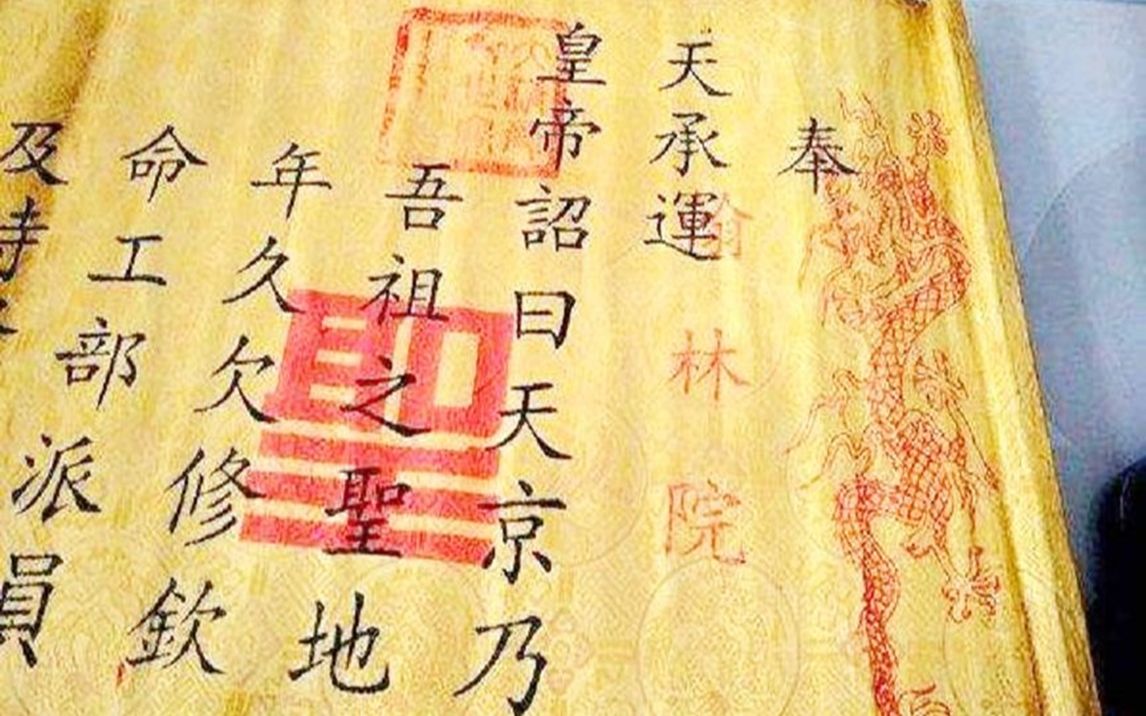 奉
天承運
皇帝詔曰天京乃
吾祖之聖地
年久欠修欽
命工部派員
及
林院